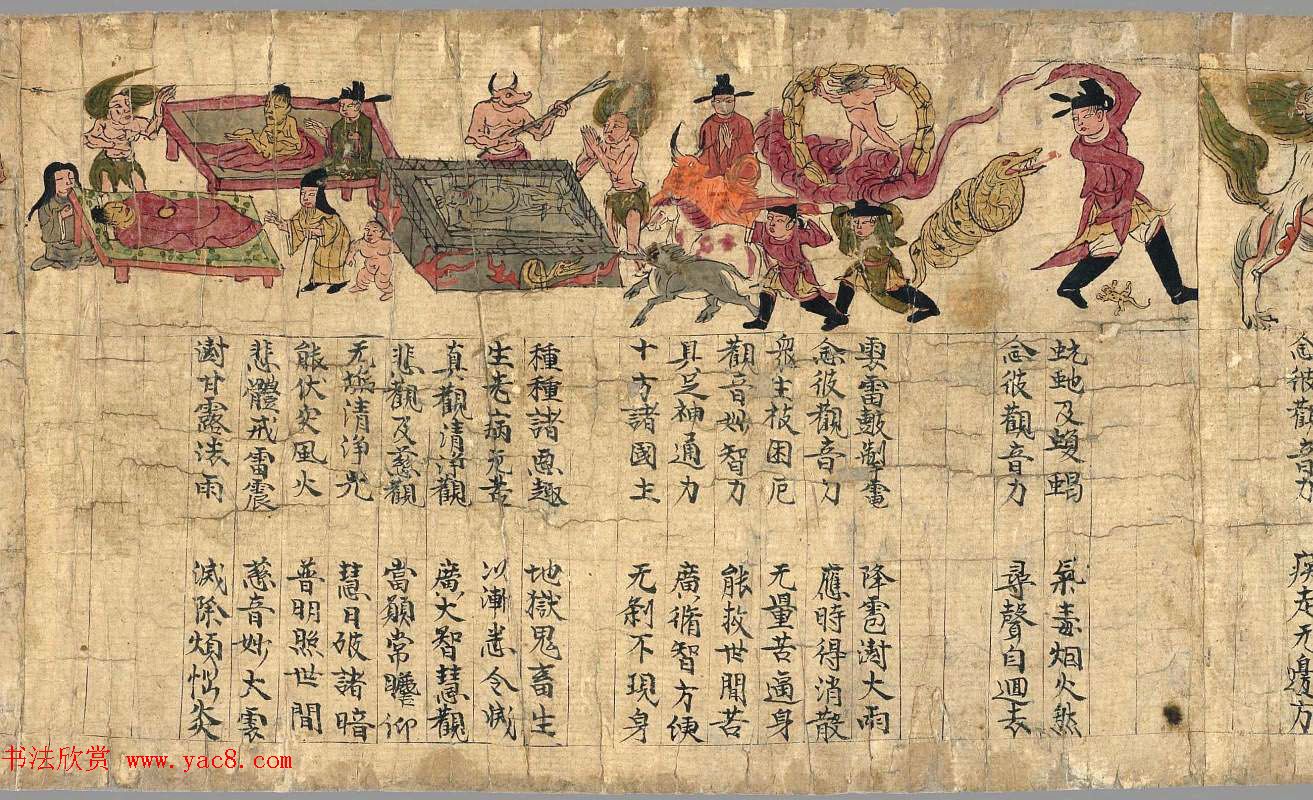 念彼觀音力 疾走无邊方
蚖虵及蝮蝎 氣毒烟火然
念彼觀音力 尋聲自迴去
雲雷鼓掣電 降雹澍大雨
念彼觀音力 應時得消散
衆生被困厄 无量苦逼身
觀音妙智力 能救世間苦
具足神通力 廣脩智方便
十方諸國土 无剎不現身
種種諸惡趣 地獄鬼畜生
生老病死苦 以漸悉令滅
真觀清淨觀 廣大智慧觀
悲觀及慈觀 當願常瞻仰
无垢清淨光 慧日破諸暗
能伏灾風火 普明照世間
悲體戒雷震 慈音妙大雲
澍甘露法雨 滅除煩惱炎
书法欣赏 www.yac8.com